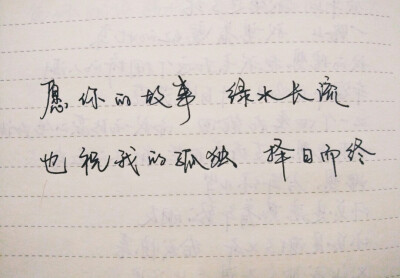 愿你的故事 绿水长流
也祝我的孤独 择日而终